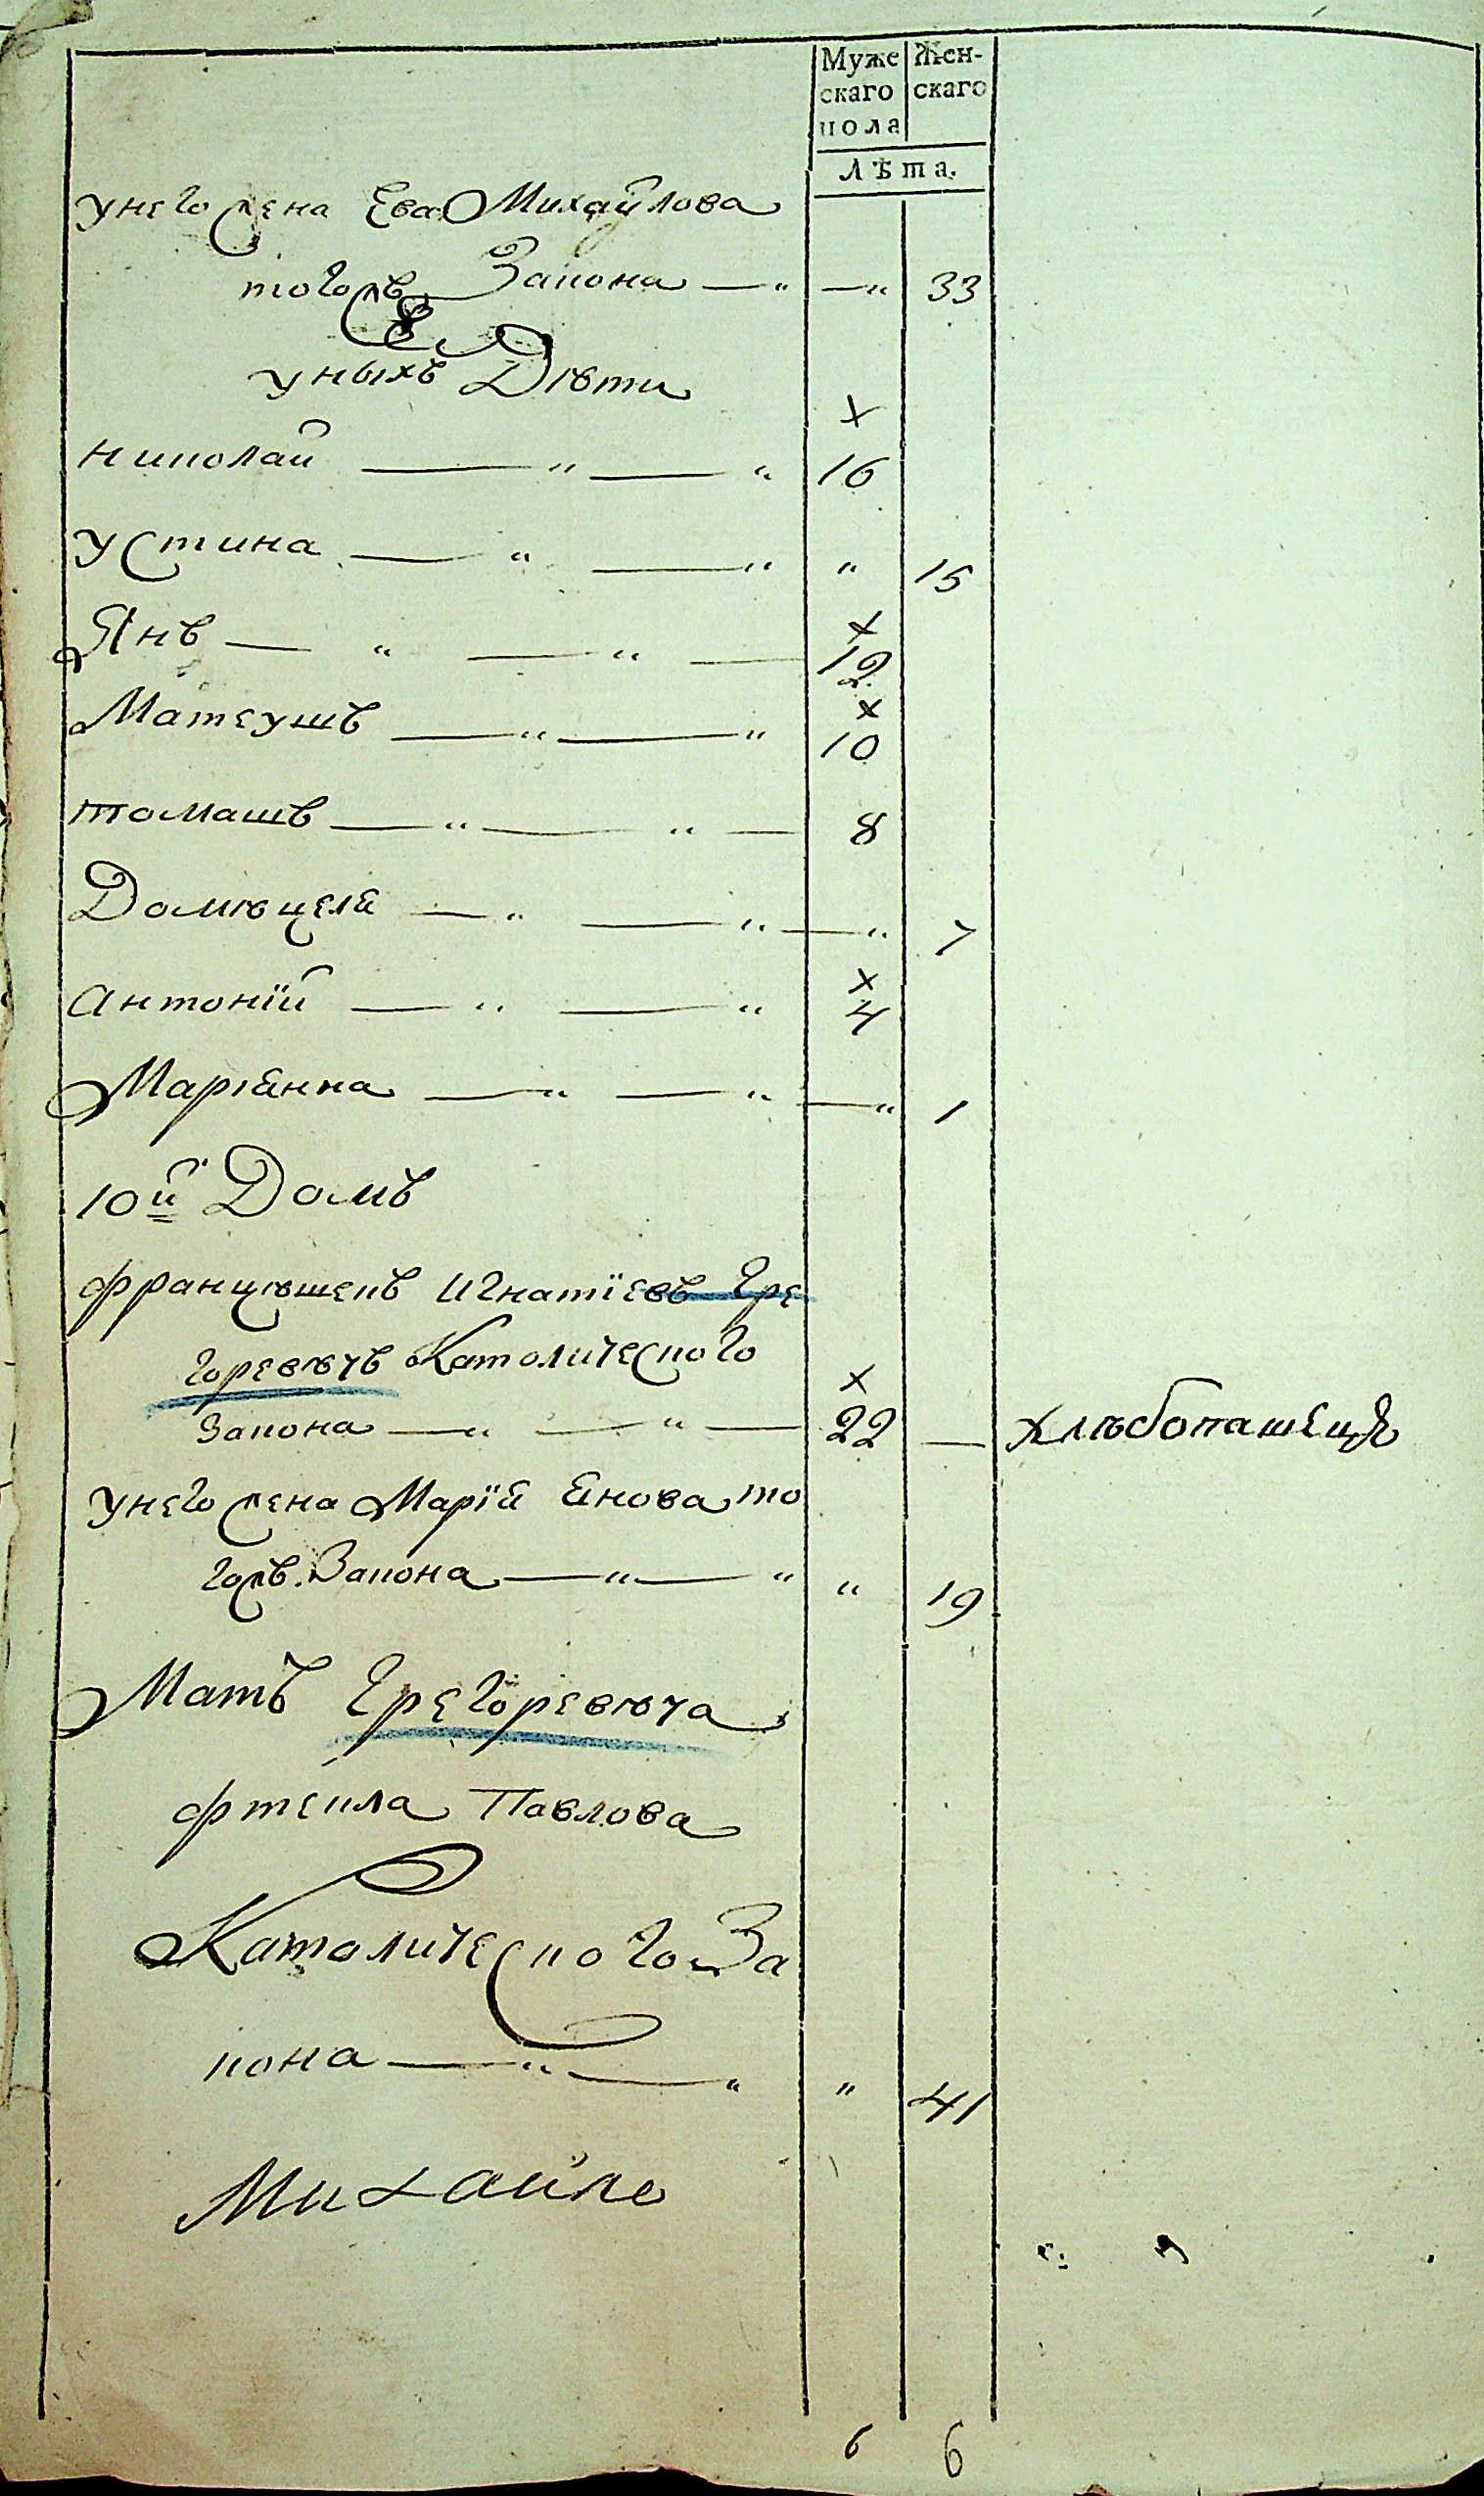 Муже Жен-
скаго скаго
пола
Лѣта.
унего жена Ева Михайлова
тогожъ Закона — „ — „ 33
уныхъ Дѣти
х
николай — „ — „ 16
устина — „ — „ „ 15
х
Янъ — „ — „ — 12
х
Матеушъ — „ — „ 10
томашъ — „ — „ — 8
Домѣцеля — „ — „ — „ 7
х
антонїй — „ — „ 4
Маріянна — „ — „ — „ 1
10й Домъ
францѣшекъ Игнатїевъ Гре
горевѣчъ Католического
х
закона — „ — „ — 22 — хлѣбопашецъ
унего жена Марїя Янова то
гожъ Закона — „ — „ „ 19
Матъ Грегоревѣча
фтекла Павлова
Католического За
кона — „ — „ „ 41
Михайло
6 6